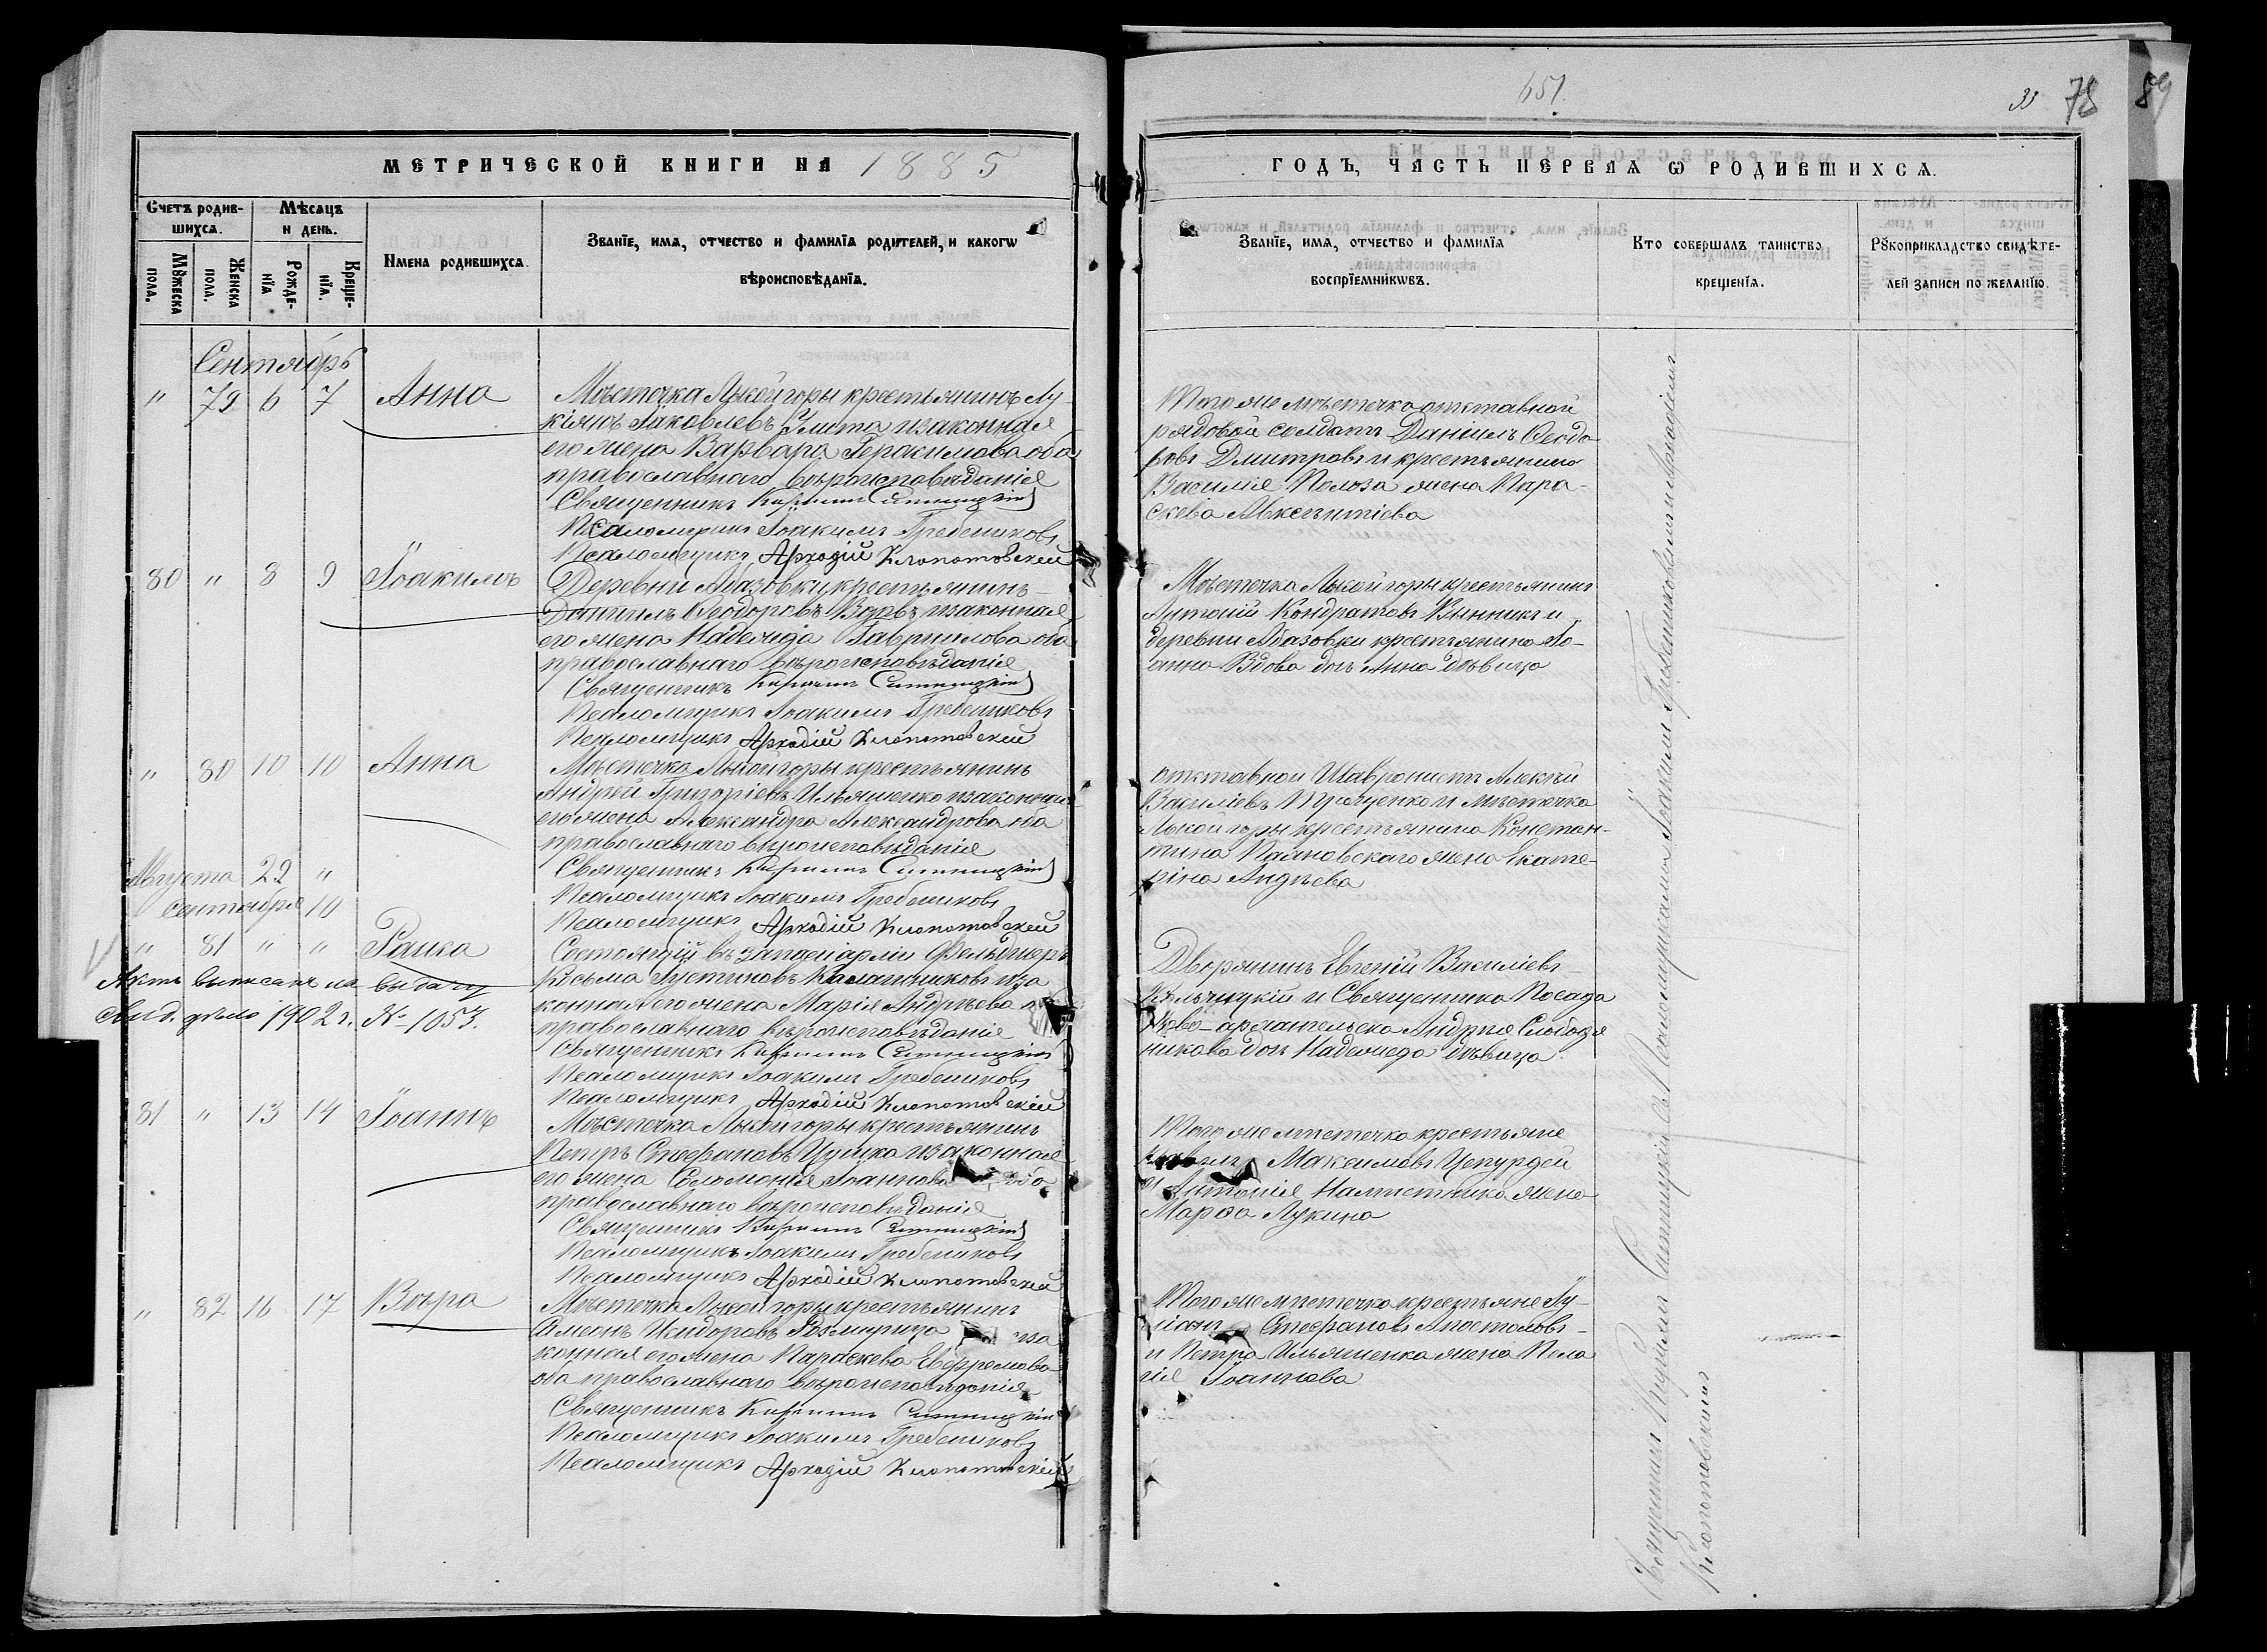 651.
33 78 89
МЕТРИЧЕСКОЙ КНИГИ НА 1885
ГОДЪ, ЧАСТЬ ПЕРВАЯ Ѡ РОДИВШИХСѦ.
Счетъ родив-
шихсѧ.
Мѣсѧцъ
и день.
Мꙋжеска
пола.
Женска
пола.
Рожде-
нїѧ
Креще-
нїѧ.
Имена родившихсѧ.
Званїе, имѧ, отчество и фамилїѧ родителей, и какогѡ
вѣроисповѣданїѧ.
Званїе, имѧ, отчество и фамилїѧ
воспрїемникѡвъ.
Кто совершалъ таинство
крещенїѧ.
Рꙋкоприкладство свидѣте-
лей записи по желанїю.
Сентябрь
" 79 6 7 Анна
Мѣстечка Лысой горы крестьянинъ Лу-
кіянъ Іаковлевъ и законная
его жена Варвара Герасимова оба
православнаго вѣроисповѣданія
Священникъ Кириллъ Синицкій
Псаломщикъ Іоакимъ Гребениковъ
Псаломщикъ Аркадій Клопотовскій
Того же мѣстечка отставной
рядовой солдатъ Даніилъ Ѳеодо-
ровъ Дмитровъ и крестьянина
Василія Полоза жена Пара-
скева Авксентіева
80 " 8 9 Іоакимъ
Деревни Абазовки крестьянинъ
Даніилъ Ѳеодоровъ и законная
его жена Надежда Гавриилова оба
православнаго вѣроисповѣданія
Священникъ Кириллъ Синицкій
Псаломщикъ Іоакимъ Гребениковъ
Псаломщикъ Аркадій Клопотовскій
Мѣстечка Лысой горы крестьянинъ
Антоній Кондратовъ Винникъ и
деревни Абазовки крестьянина Іо-
анна Вдова дочь Анна дѣвица
" 80 10 10 Анна
Мѣстечка Лысой горы крестьянинъ
Андрей Григоріевъ Ильяшенко и законная
его жена Александра Александрова оба
православнаго вѣроисповѣданія
Священникъ Кириллъ Синицкій
Псаломщикъ Іоакимъ Гребениковъ
Псаломщикъ Аркадій Клопотовскій
отставной Алексѣй
Василіевъ Проценко и мѣстечка
Лысой горы крестьянина Констан-
тина Пановскаго жена Екате-
рина Андреева
Августа 22 "
Сентября 10
" 81 " " Раиса
Актъ выписанъ на выдачу
свид. дѣло 1902 г. № 1053.
Состоящій въ запасѣ арміи Фельдшеръ
Козьма Іустиновъ Калашниковъ и за-
конная его жена Марія Андреева
православнаго вѣроисповѣданія
Священникъ Кириллъ Синицкій
Псаломщикъ Іоакимъ Гребениковъ
Псаломщикъ Аркадій Клопотовскій
Дворянинъ Евгеній Василіевъ
и Священника Посада
Ново-архангельска Андрея Слободя
никова дочь Надежда дѣвица
81 " 13 14 Іоаннъ
Мѣстечка Лысой горы крестьянинъ
Петръ Стефановъ Цушко и законная
его жена Соломонія Іоаннова оба
православнаго вѣроисповѣданія
Священникъ Кириллъ Синицкій
Псаломщикъ Іоакимъ Гребениковъ
Псаломщикъ Аркадій Клопотовскій
Того же мѣстечка крестьяне
Максимовъ Цепурдей
и Антонія жена
Марѳа Лукина
" 82 16 17 Вѣра
Мѣстечка Лысой горы крестьянинъ
Симеонъ Исидоровъ и за-
конная его жена Параскева Евфремова
оба православнаго вѣроисповѣданія
Священникъ Кириллъ Синицкій
Псаломщикъ Іоакимъ Гребениковъ
Псаломщикъ Аркадій Клопотовскій
Того же мѣстечка крестьяне Лу-
кіанъ Стефановъ Апостоловъ
и Петра Ильяшенка жена Пела
гія Іоаннова
Священникъ Кириллъ Синицкій съ Псаломщиками Іоакимомъ Гребениковымъ и Аркадіемъ
Клопотовскимъ